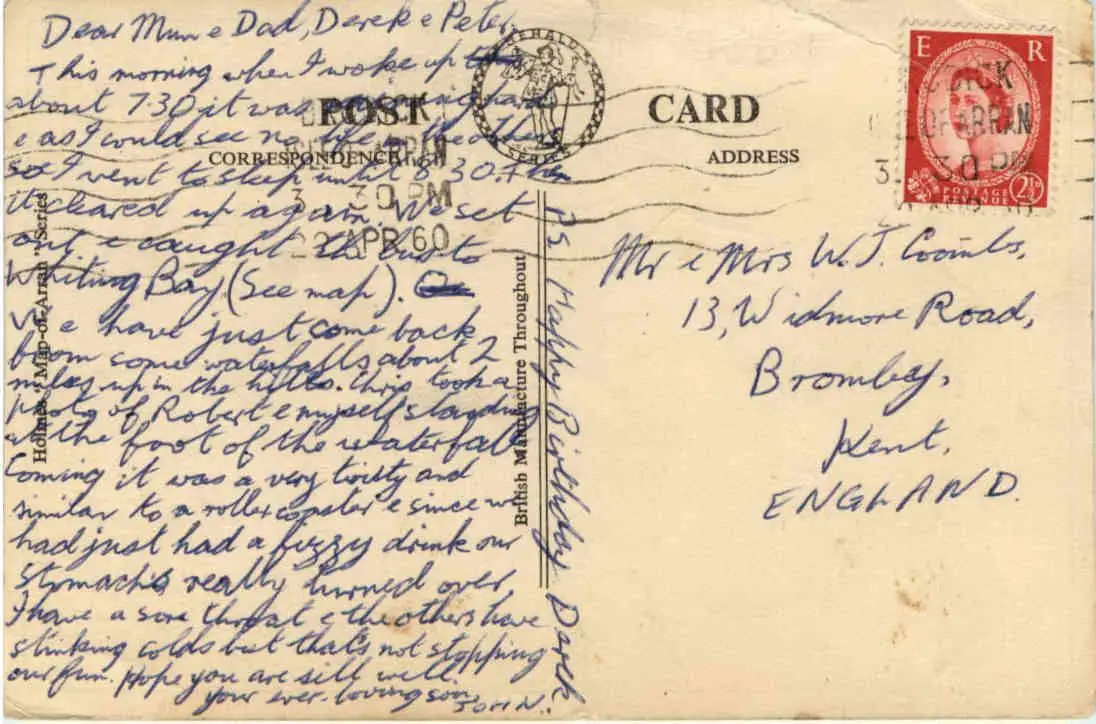 Dear Mum e Dad, Derek e Peter,
This morning when I woke up
about 7.30 it was raining hard
e as I could see no life in the others
so I went to sleep until 8.30. Then
it cleared up again. We set
out e caught the bus to
Whiting Bay, (See map).
We have just come back
from some waterfalls about 2
miles up in the hills. Chris took a
photo of Robert e myself standing
at the foot of the waterfall
Coming it was a very twisty and
similar to a roller coaster e since we
had just had a fizzy drink our
stomachs really turned over
I have a sore throat e the others have
stinking colds but that's not stopping
our fun. Hope you are sill well.
Your ever-loving son,
JOHN.
PS Happy Birthday Derek
POST CARD
CORRESPONDENCE
ADDRESS
HERALD
SERIES
Holmes' "Map-of-Arran" Series
British Manufacture Throughout
E R
POSTAGE
REVENUE
2½D
ISLE OF ARRAN
30 PM
APR 60
OF ARRAN
30 PM
Mr e Mrs W. J. Coombs,
13, Widmore Road,
Bromley,
Kent,
ENGLAND.